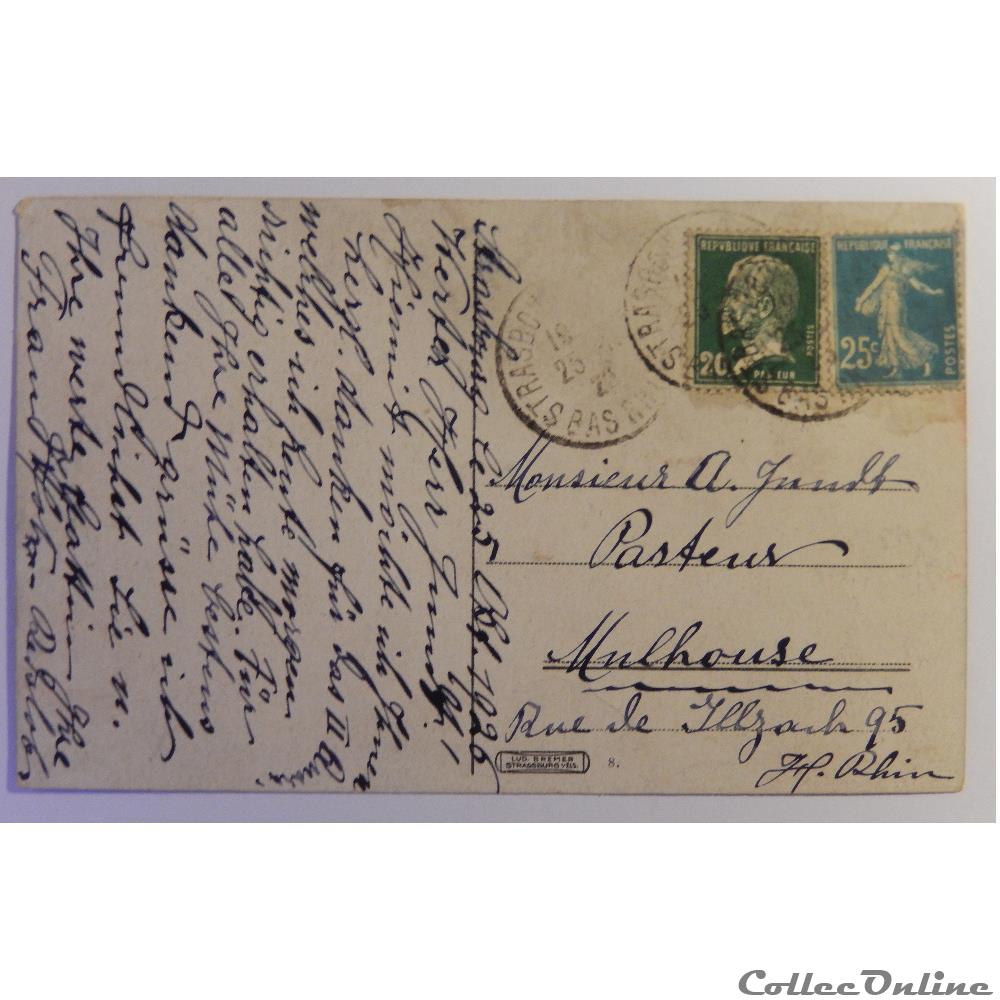 Strassburg le 25 Okt. 1926
Werter Herr Jundt!
Hiermit möchte ich Ihnen
herzl. danken für das II
welches ich heute morgen
richtig erhalten habe. Für
alles Ihre Mühe bestens
dankend grüsse ich
freundlichst Sie u.
Ihre werte Gattin
Frau
STRASBOURG
18
25
BAS RHIN
STRASBOURG
REPUBLIQUE FRANÇAISE
20c
POSTES
PASTEUR
REPUBLIQUE FRANÇAISE
25c
POSTES
Monsieur A. Jundt
Pasteur
Mulhouse
Rue de Illzach 95
H. Rhin
LUD. BREMER
STRASSBURG i/ELS.
8.
CollecOnline